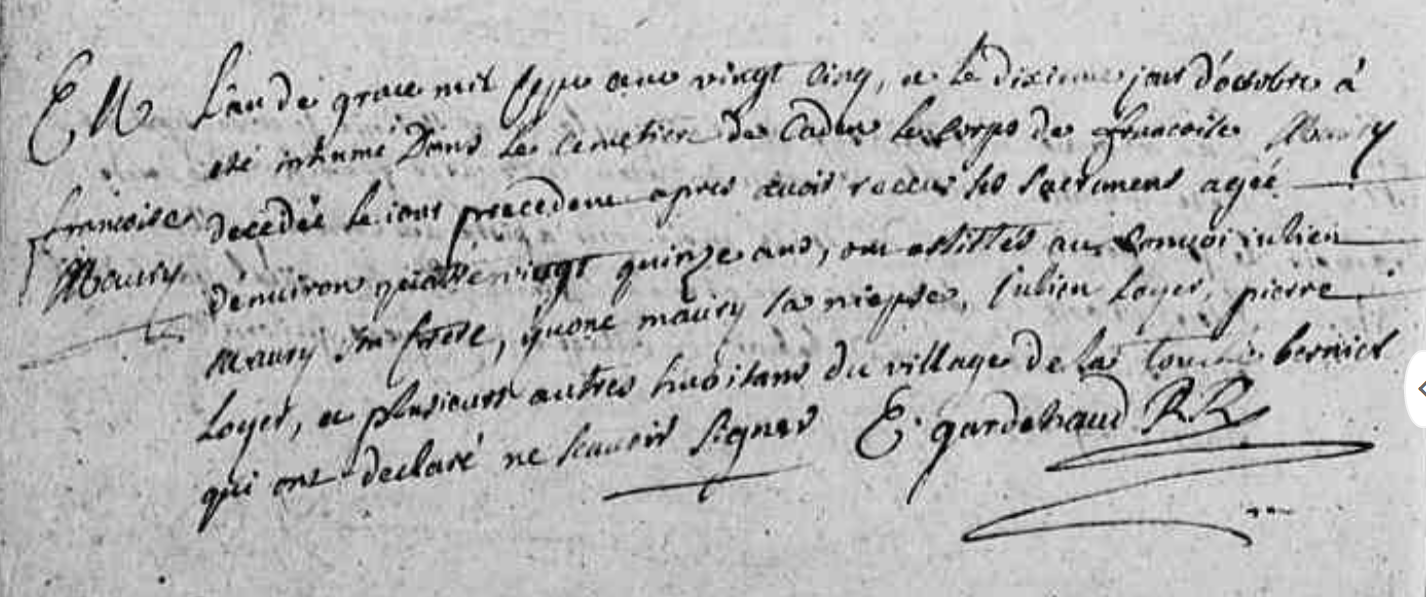 EM
françoise
Maury
L'an de grace mil sept cent vingt cinq, et le dixieme jour d'octobre à
esté inhumé Dans le cemetiere de Caden le Corps de francoise Maury
decedée le jour precedent apres avoir receu ses sacrement agéé
d'environ quattre vingt quinze ans, ont assisttés au Convoi iulien
Maury son frere, yvone maury sa niepse, Julien Loyer, pierre
Loyer, et plusieurs autres habitans du village de la touche bernier
qui ont declaré ne scavoir signer E. gardehaud RR